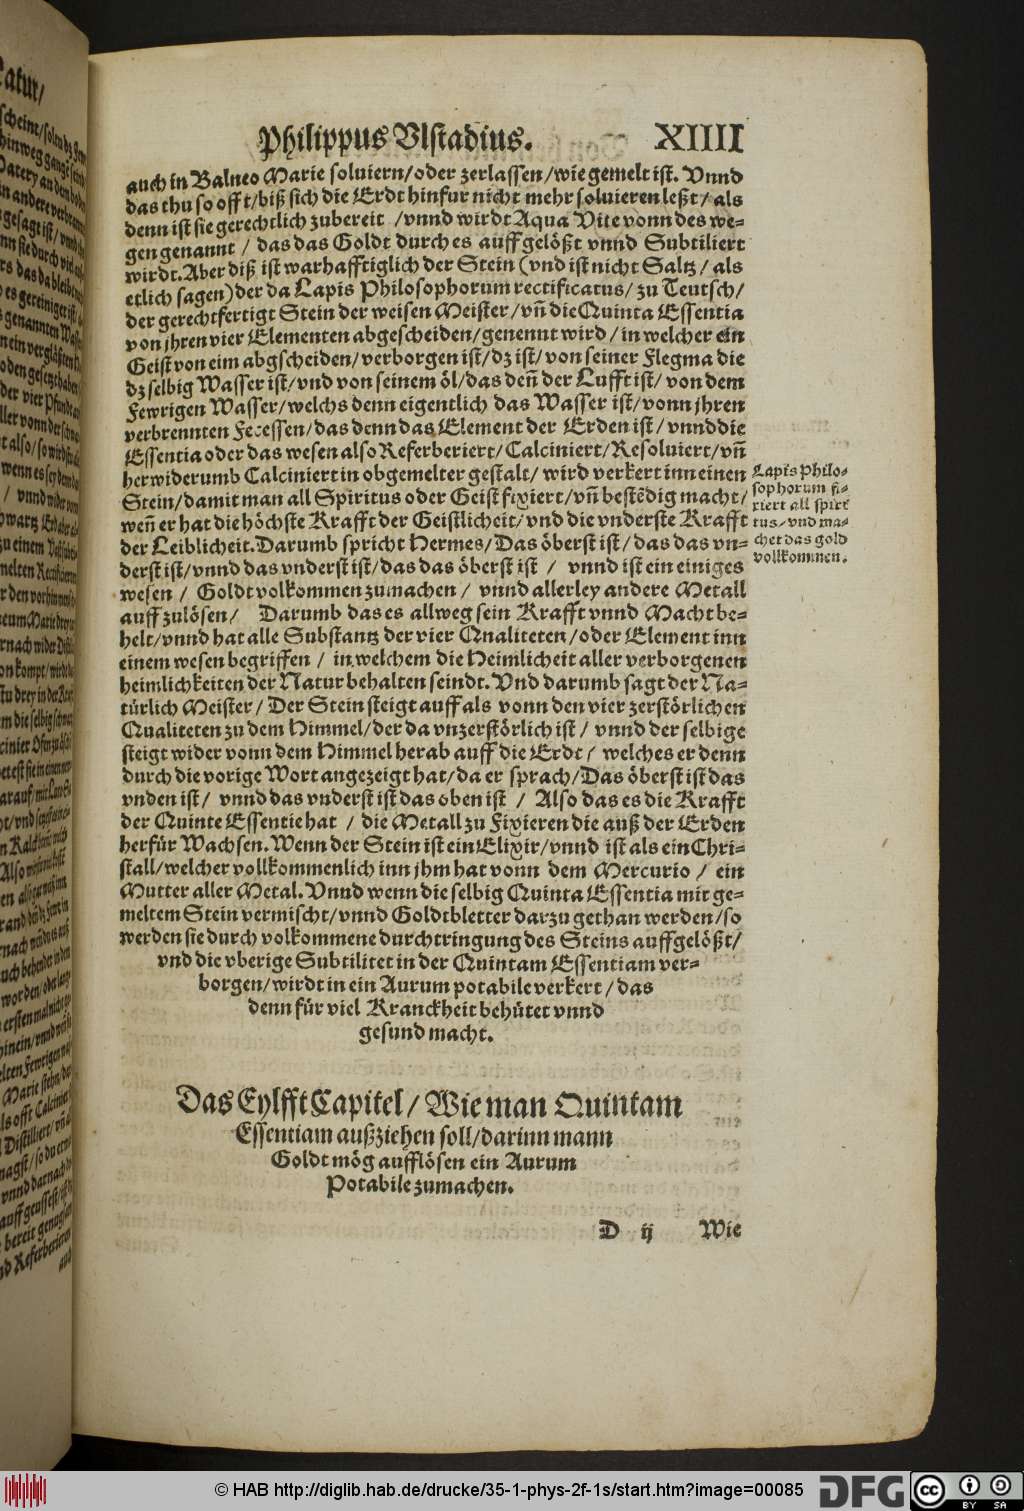 Philippus Vlstadius. XIIII
auch in Balneo Marie soluiern/oder zerlassen/wie gemelt ist. Vnnd
das thu so offt/biß sich die Erdt hinfur nicht mehr soluieren leßt/als
denn ist sie gerechtlich zubereit /vnnd wirdt Aqua Vite vonn des we-
gen genannt / das das Goldt durch es auffgelößt vnnd Subtiliert
wirdt. Aber diß ist warhafftiglich der Stein (vnd ist nicht Saltz/als
etlich sagen) der da Lapis Philosophorum rectificatus/zu Teutsch/
der gerechtfertigt Stein der weisen Meister/vñ die Quinta Essentia
von jhren vier Elementen abgescheiden/genennt wird/in welcher ein
Geist von eim abgscheiden/verborgen ist/dz ist/von seiner Flegma die
dz selbig Wasser ist/vnd von seinem öl/das deñ der Lufft ist/von dem
Fewrigen Wasser/welchs denn eigentlich das Wasser ist/vonn jhren
verbrennten Fecessen/das denn das Element der Erden ist/vnnd die
Essentia oder das wesen also Referberiert/Calciniert/Resoluiert/vñ
herwiderumb Calciniert in obgemelter gestalt/wird verkert inn einen
Stein/damit man all Spiritus oder Geist fixiert/vñ bestēdig macht/
weñ er hat die höchste Krafft der Geistlicheit/vnd die vnderste Krafft
der Leiblicheit. Darumb spricht Hermes/Das öberst ist/das das vn-
derst ist/vnnd das vnderst ist/das das öberst ist / vnnd ist ein einiges
wesen / Goldt volkommen zumachen / vnnd allerley andere Metall
auff zulösen / Darumb das es allweg sein Krafft vnnd Macht be-
helt/vnnd hat alle Substantz der vier Qnaliteten/oder Element inn
einem wesen begriffen / in welchem die Heimlicheit aller verborgenen
heimlichkeiten der Natur behalten seindt. Vnd darumb sagt der Na-
türlich Meister/Der Stein steigt auff als vonn den vier zerstörlichen
Qualiteten zu dem Himmel/der da vnzerstörlich ist/vnnd der selbige
steigt wider vonn dem Himmel herab auff die Erdt / welches er denn
durch die vorige Wort angezeigt hat/da er sprach/Das öberst ist das
vnden ist / vnnd das vnderst ist das oben ist / Also das es die Krafft
der Quinte Essentie hat / die Metall zu Fixieren die auß der Erden
herfür Wachsen. Wenn der Stein ist ein Elixir/vnnd ist als ein Chri-
stall/welcher vollkommenlich inn jhm hat vonn dem Mercurio / ein
Mutter aller Metal. Vnnd wenn die selbig Quinta Essentia mit ge-
meltem Stein vermischt/vnnd Goldtbletter darzu gethan werden/so
werden sie durch volkommene durchtringung des Steins auffgelößt/
vnd die vberige Subtilitet in der Quintam Essentiam ver-
borgen/wirdt in ein Aurum potabile verkert/das
denn für viel Kranckheit behütet vnnd
gesund macht.
Lapis Philo-
sophorum fi-
xiert all spiri
tus/vnd ma-
chet das gold
vollkommen.
Das Eylfft Capitel/Wie man Quintam
Essentiam außziehen soll/darinn mann
Goldt mög aufflösen ein Aurum
Potabile zumachen.
D ij Wie
© HAB http://diglib.hab.de/drucke/35-1-phys-2f-1s/start.htm?image=00085
DFG
cc BY SA